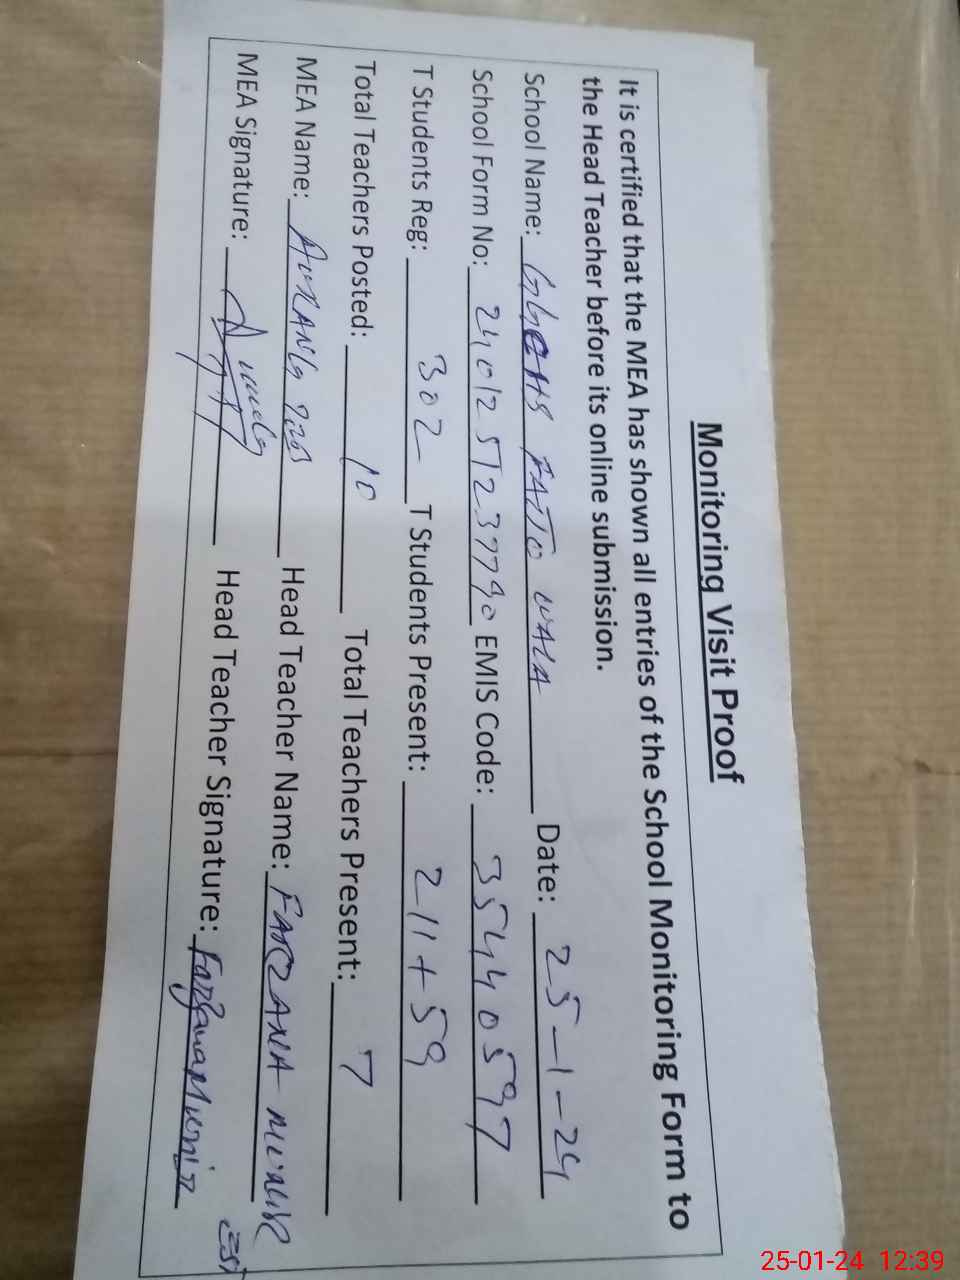 Monitoring Visit Proof
It is certified that the MEA has shown all entries of the School Monitoring Form to
the Head Teacher before its online submission.
School Name: GGCHS FAJTO WALA Date: 25-1-24
School Form No: EMIS Code: 35440597
T Students Reg: 302 T Students Present: 211+59
Total Teachers Posted: 10 Total Teachers Present: 7
MEA Name: AURANG ZEB Head Teacher Name: FARZANA MUNIR
MEA Signature: Head Teacher Signature: Farzana Munir
25-01-24 12:39